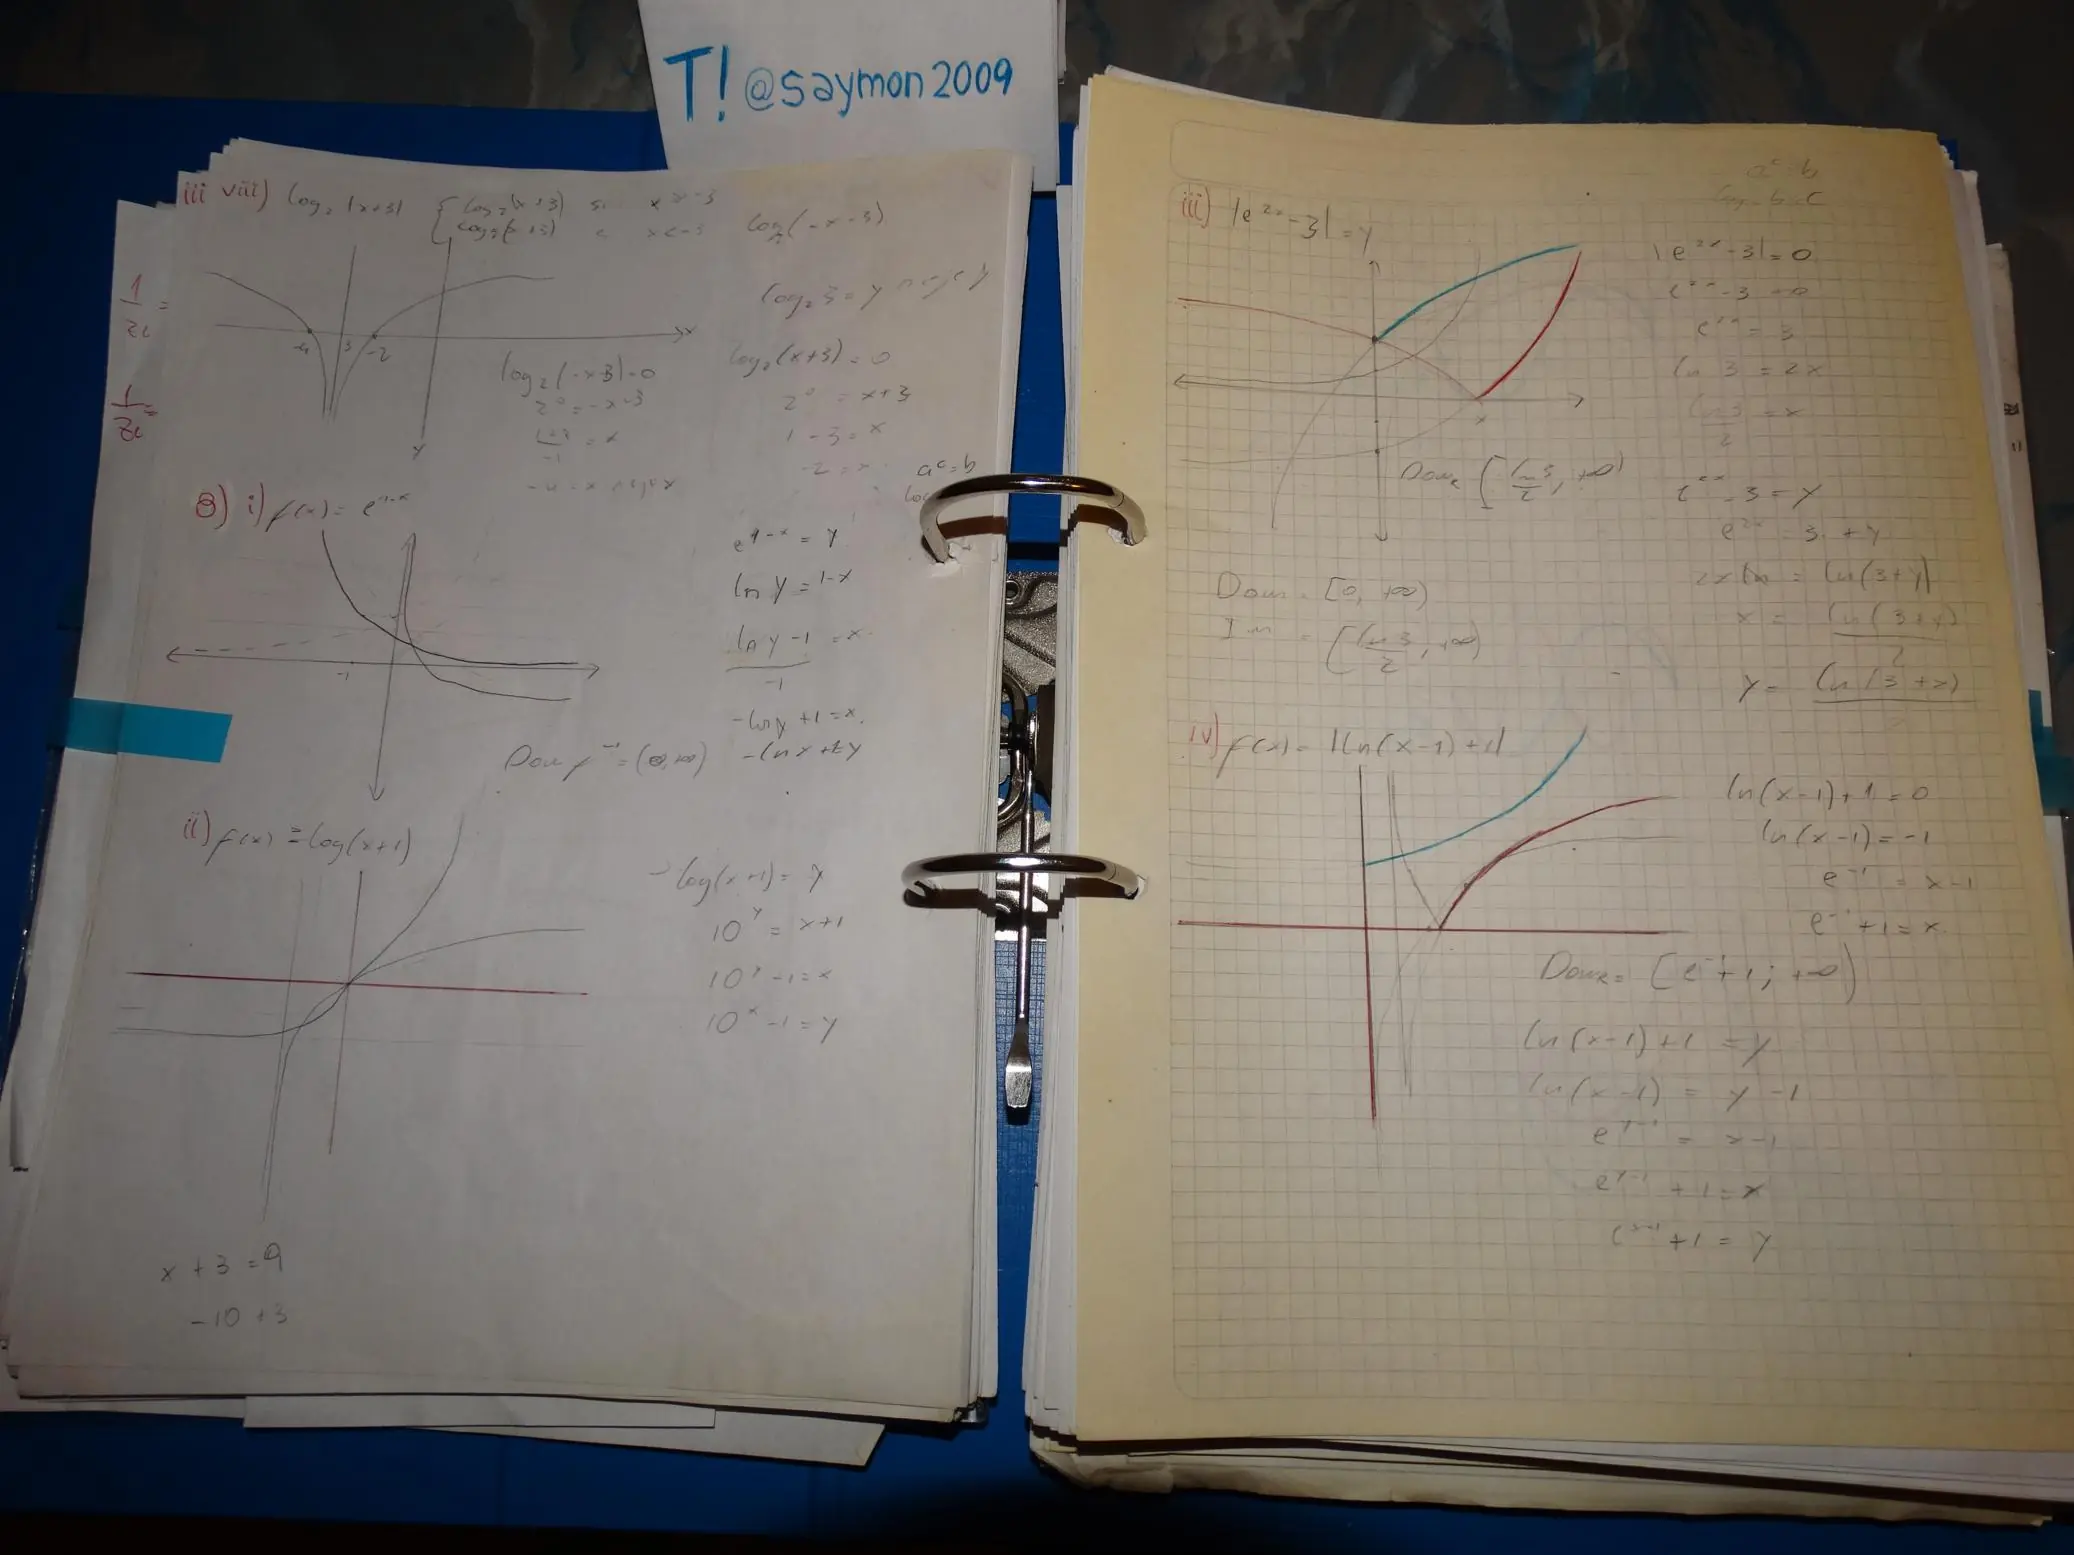 T! @saymon2009
iii viii) log₂ |x+3| { log₂(x+3) si x>-3
log₂(x+3) x<-3
log₂(-x-3)
1
—— =
zc
1
—— =
zc
log₂ 3 = y
x
-4 3 -2
y
log₂(-x-3)=0
2⁰ = -x-3
= x
-1
log₂(x+3) = 0
2⁰ = x+3
1-3 = x
-2 = x
aᶜ=b
8) i) f(x) = e^(1-x)
-1
e^(1-x) = y
ln y = 1-x
ln y -1 = x
-1
-ln y +1 = x.
Dom f⁻¹ =
ii) f(x) = log(x+1)
log(x+1) = y
10^y = x+1
10^y -1 = x
10^x -1 = y
x + 3 = 9
-10 + 3
aᶜ = b
iii) |e^(2x) -3| = y
x
|e^(2x) -3| = 0
e^(2x) -3 = 0
e^(2x) = 3
ln 3 = 2x
ln 3
—— = x
2
Domᵣ [ln 3/2, +∞)
e^(2x) -3 = y
e^(2x) = 3 + y
= ln(3+y)
x = ln(3+y)
2
y = ln(3+x)
Dom = [0, +∞)
Im = [ln 3/2, +∞)
iv) f(x) = |ln(x-1)+1|
ln(x-1)+1 = 0
ln(x-1) = -1
e⁻¹ = x-1
e⁻¹ +1 = x.
Domᵣ = [e⁻¹+1; +∞)
ln(x-1)+1 = y
ln(x-1) = y -1
e^(y-1) = x-1
e^(y-1) +1 = x
e^(x-1) +1 = y